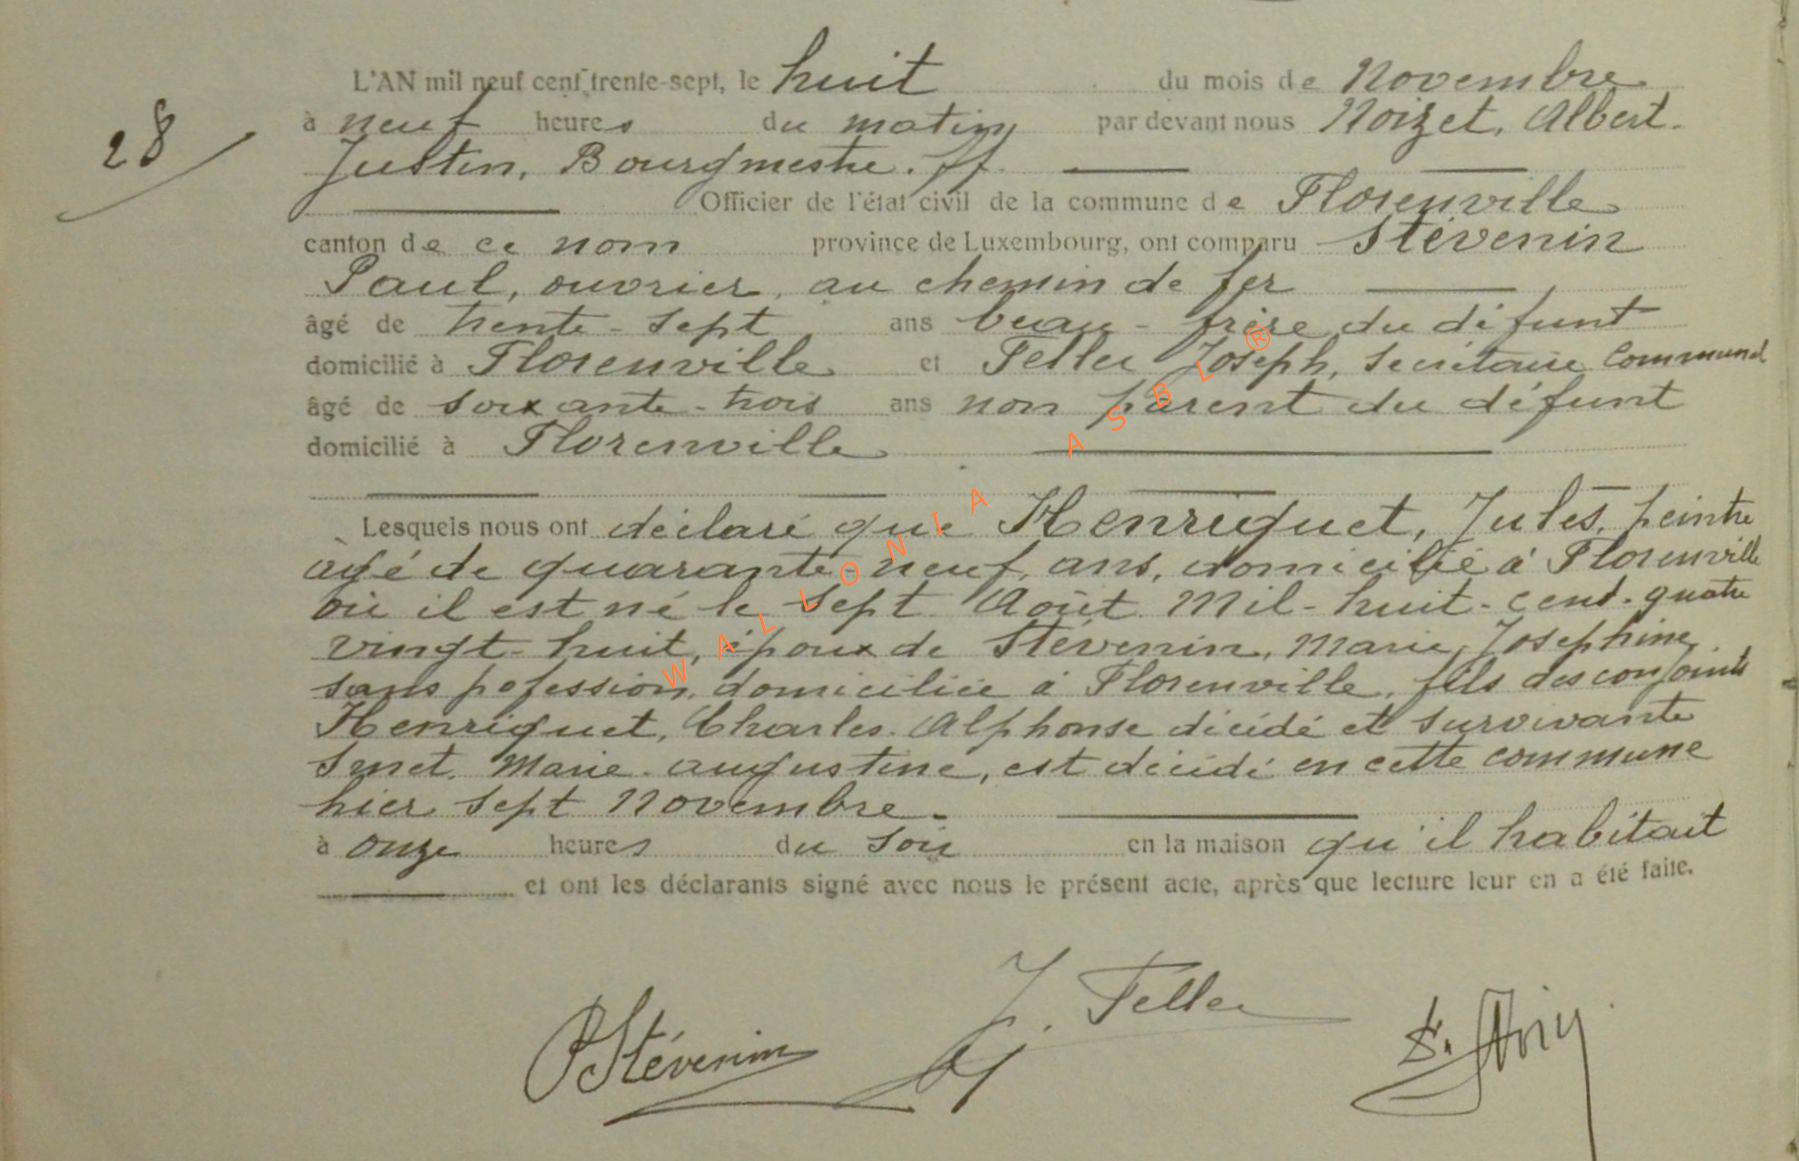 L'AN mil neuf cent trente-sept, le huit du mois de Novembre
28
à neuf heures du matin par devant nous Noizet, Albert.
Justin, Bourgmestre. ff.
Officier de l'état civil de la commune de Florenville
canton de ce nom province de Luxembourg, ont comparu Stévenin
Paul, ouvrier, au chemin de fer
âgé de trente-sept ans beau-frère du défunt
domicilié à Florenville et Feller Joseph, secrétaire communal
âgé de soixante-trois ans non parent du défunt
domicilié à Florenville
Lesquels nous ont déclaré que Henriquet, Jules, peintre
âgé de quarante-neuf, ans, domicilié à Florenville
où il est né le sept Août Mil-huit-cent-quatre
vingt-huit, époux de Stévenin, Marie, Josephine
sans pofession, domiciliée à Florenville, fils des conjoints
Henriquet, Charles. Alphonse décédé et survivante
Smet. Marie. augustine, est décédé en cette commune
hier sept Novembre.
à onze heures du soir en la maison qu'il habitait
et ont les déclarants signé avec nous le présent acte, après que lecture leur en a été faite.
WALLONIA ASBL ®
J. Feller
PStévenin